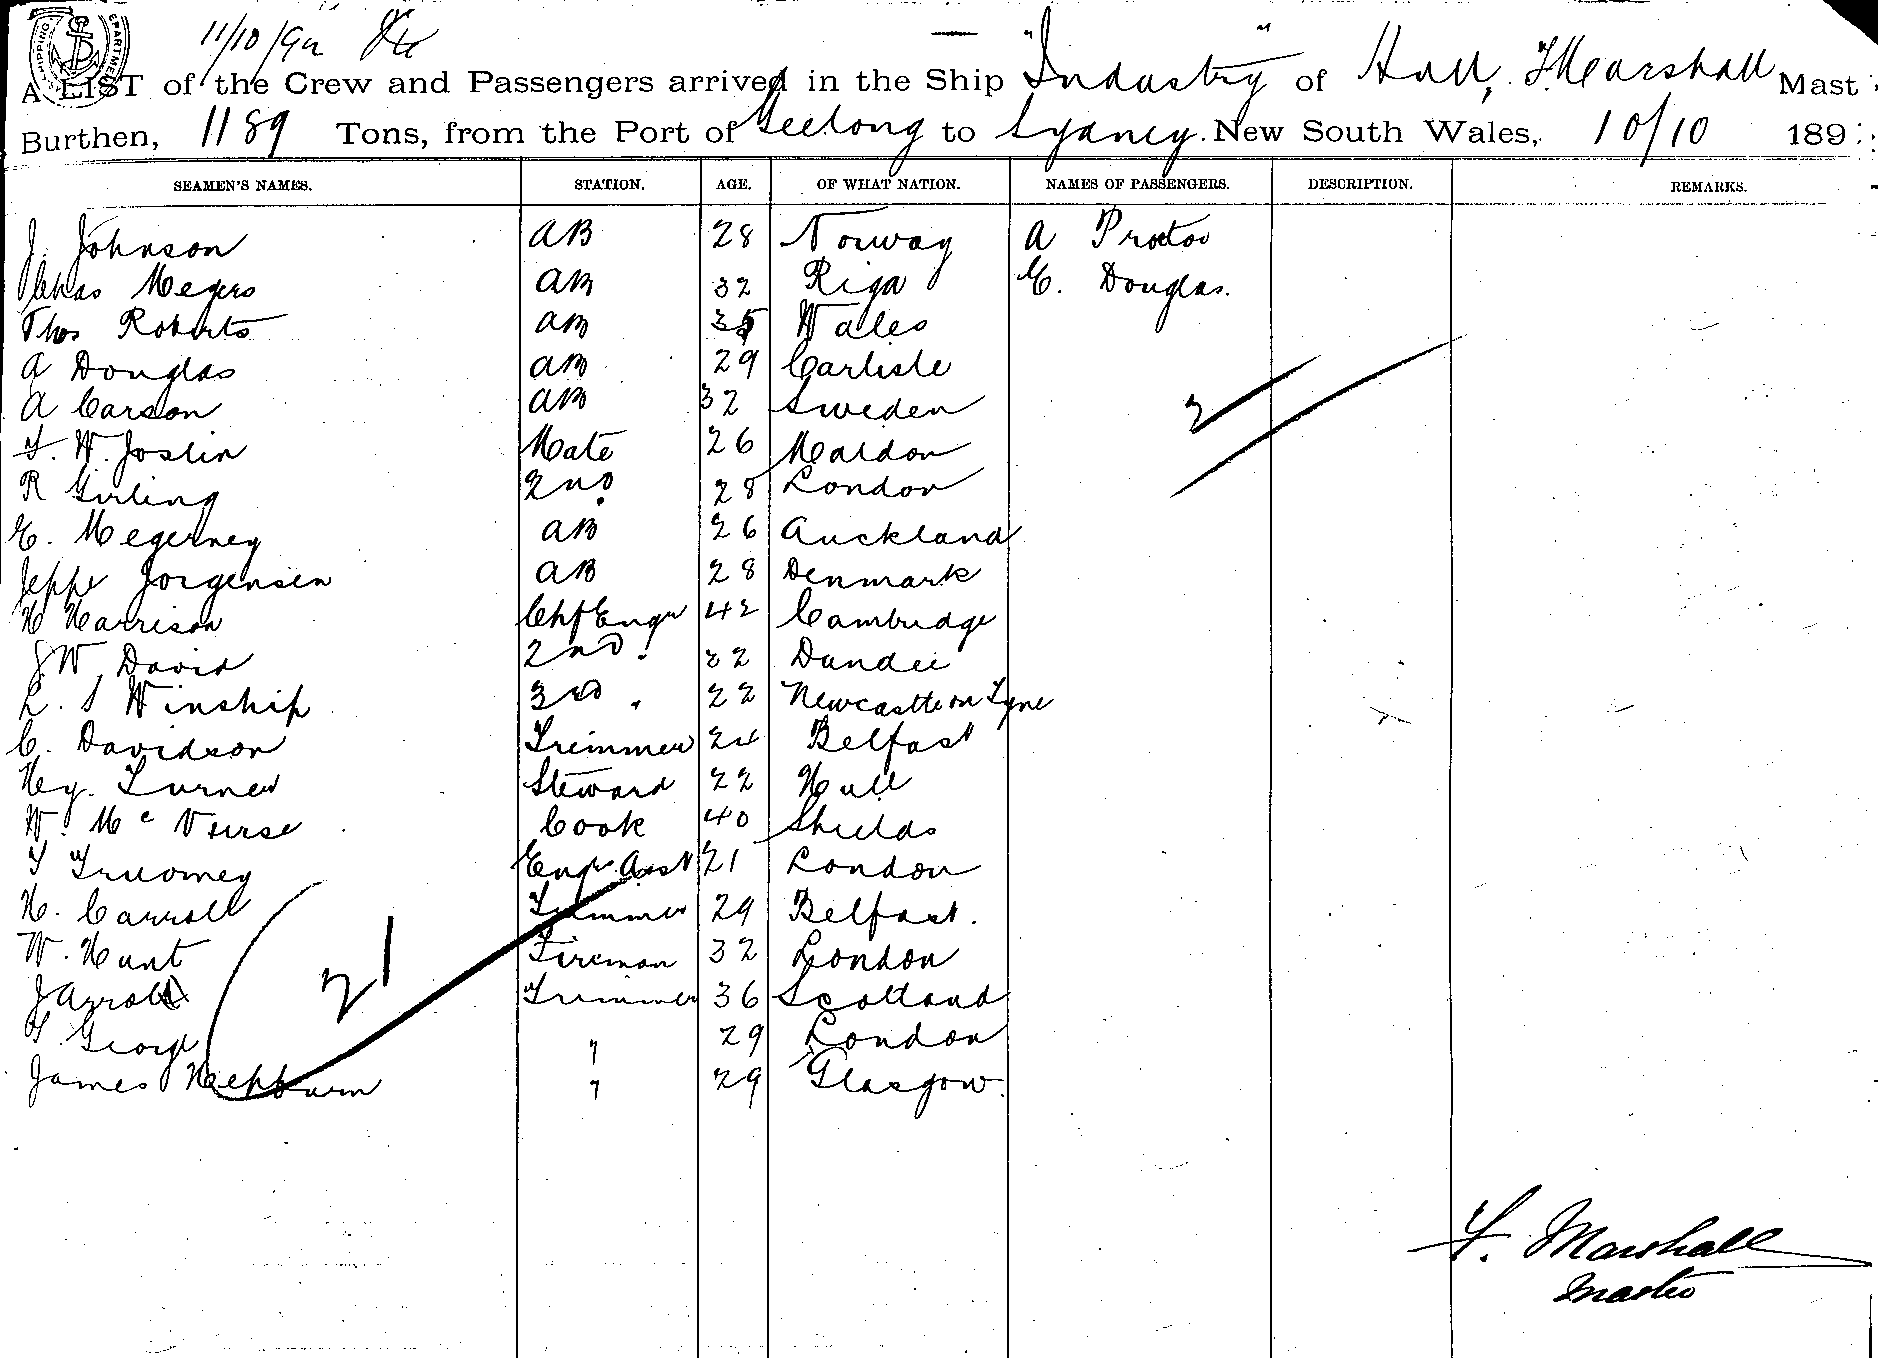 SHIPPING DEPARTMENT
11/10/92
A LIST of the Crew and Passengers arrived in the Ship "Industry" of Hull, F. Marshall Mast
Burthen, 1189 Tons, from the Port of Geelong to Sydney. New South Wales, 10/10 189
SEAMEN'S NAMES. STATION. AGE. OF WHAT NATION. NAMES OF PASSENGERS. DESCRIPTION. REMARKS.
J. Johnson AB 28 Norway A Proctor
Chas Meyers AB 32 Riga E. Douglas.
Thos Roberts AB 35 Wales
A Douglas AB 29 Carlisle
A Carson AB 32 Sweden
2
F. W. Joslin Mate 26 Maldon
R Girling 2nd. 28 London
E. Megerney AB 26 Auckland
Jeppe Jorgensen AB 28 Denmark
H Harrison Chf Engr 42 Cambridge
J W David 2nd. 32 Dundee
L. S Winship 3rd . 22 Newcastle on Tyne
C. Davidson Trimmer 24 Belfast
Hy. Turner Steward 22 Hull
W. Mc Verse Cook 40 Shields
T Engr Asst 21 London
H. Carroll Trimmer 29 Belfast.
W. Hunt Fireman 32 London
21
J Arroll Trimmer 36 Scotland
F. George " 29 London
James Hepburn " 29 Glasgow.
F. Marshall
Master